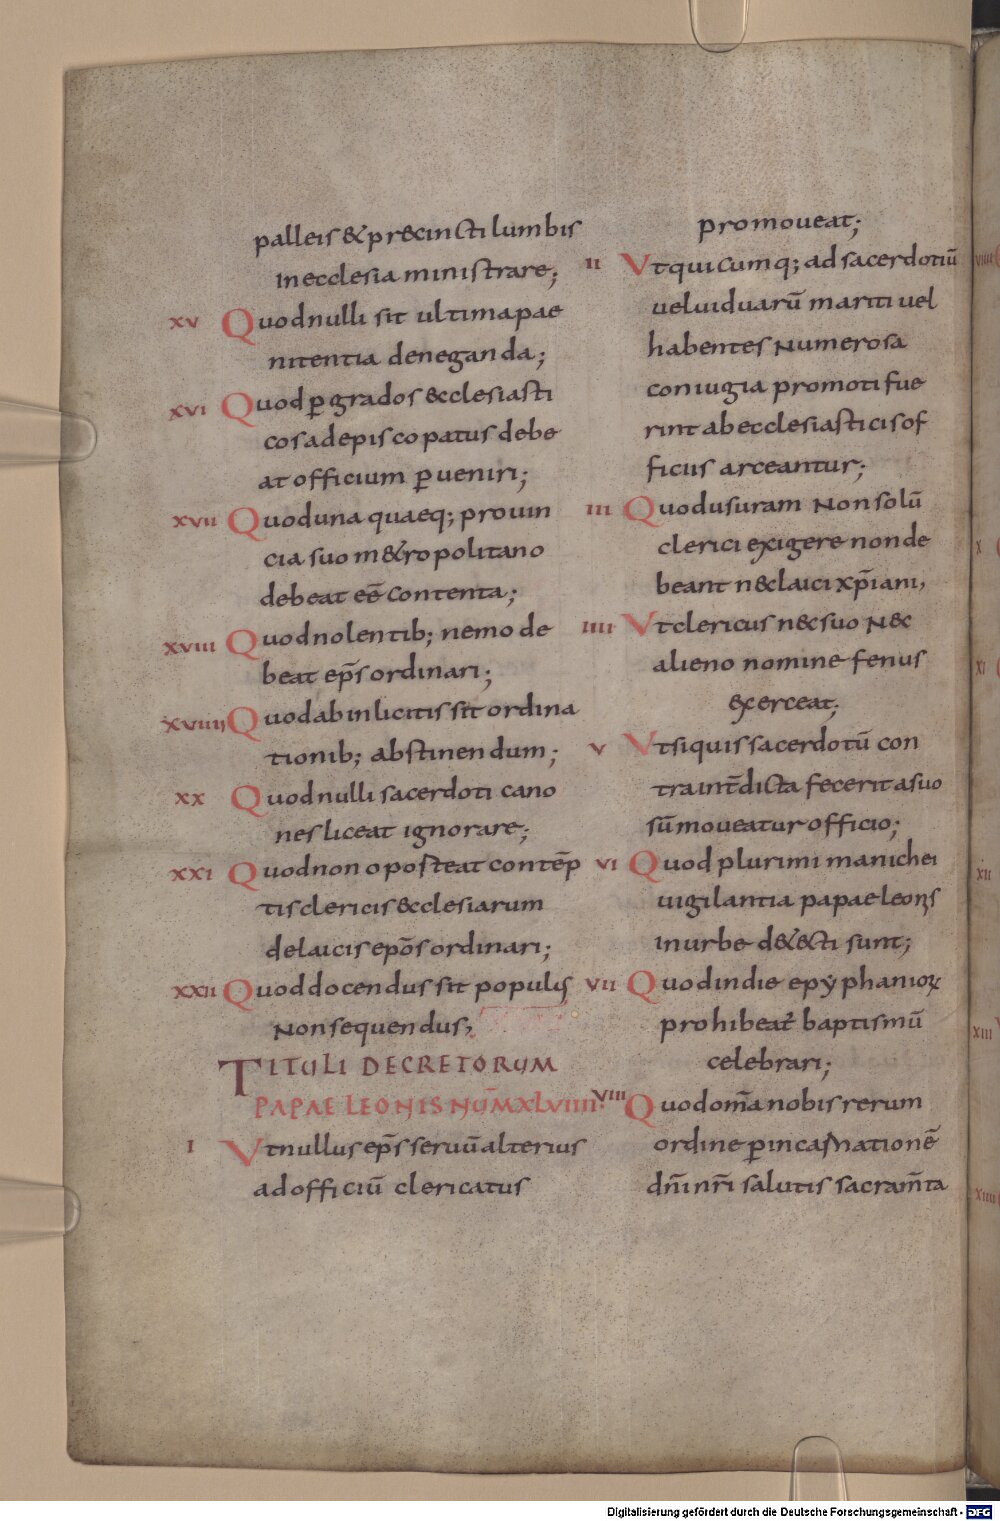 palleis & pr&cincti lumbis
in ecclesia ministrare;
XV Quod nulli sit ultima pae
nitentia deneganda;
XVI Quod p̲ grados &cclesiasti
cos ad episcopatus debe
at officium p̲ueniri;
XVII Quod una quaeq; prouin
cia suo m&ropolitano
debeat eē contenta;
XVIII Quod nolentib; nemo de
beat ep̄s ordinari;
XVIIII Quod ab inlicitis sit ordina
tionib; abstinendum;
XX Quod nulli sacerdoti cano
nes liceat ignorare;
XXI Quod non oposteat contēp
tis clericis &cclesiarum
de laicis epōs ordinari;
XXII Quod docendus sit populus
non sequendus;
TITULI DECRETORUM
PAPAE LEONIS NUM̄ XLVIIII.
I Vt nullus ep̄s seruū alterius
ad officiū clericatus
promoueat;
II Vt quicumq; ad sacerdotiū
uel uiduarū mariti uel
habentes numerosa
coniugia promoti fue
rint ab ecclesiasticis of
ficiis arceantur;
III Quod usuram non solū
clerici exigere non de
beant n&c laici xp̄iani,
IIII Vt clericus n&c suo n&c
alieno nomine fenus
exerceat;
V Vt siquis sacerdotū con
tra int̄dicta fecerit a suo
sūmoueatur officio;
VI Quod plurimi manichei
uigilantia papae leonis
in urbe det&cti sunt;
VII Quod in die epyphanioꝝ
prohibeat baptismū
celebrari;
VIII Quod om̄a nobis rerum
ordine p̲ incarnationē
dn̄i nr̄i salutis sacram̄ta
VIIII
X
XI
XII
XIII
XIIII
Digitalisierung gefördert durch die Deutsche Forschungsgemeinschaft - DFG